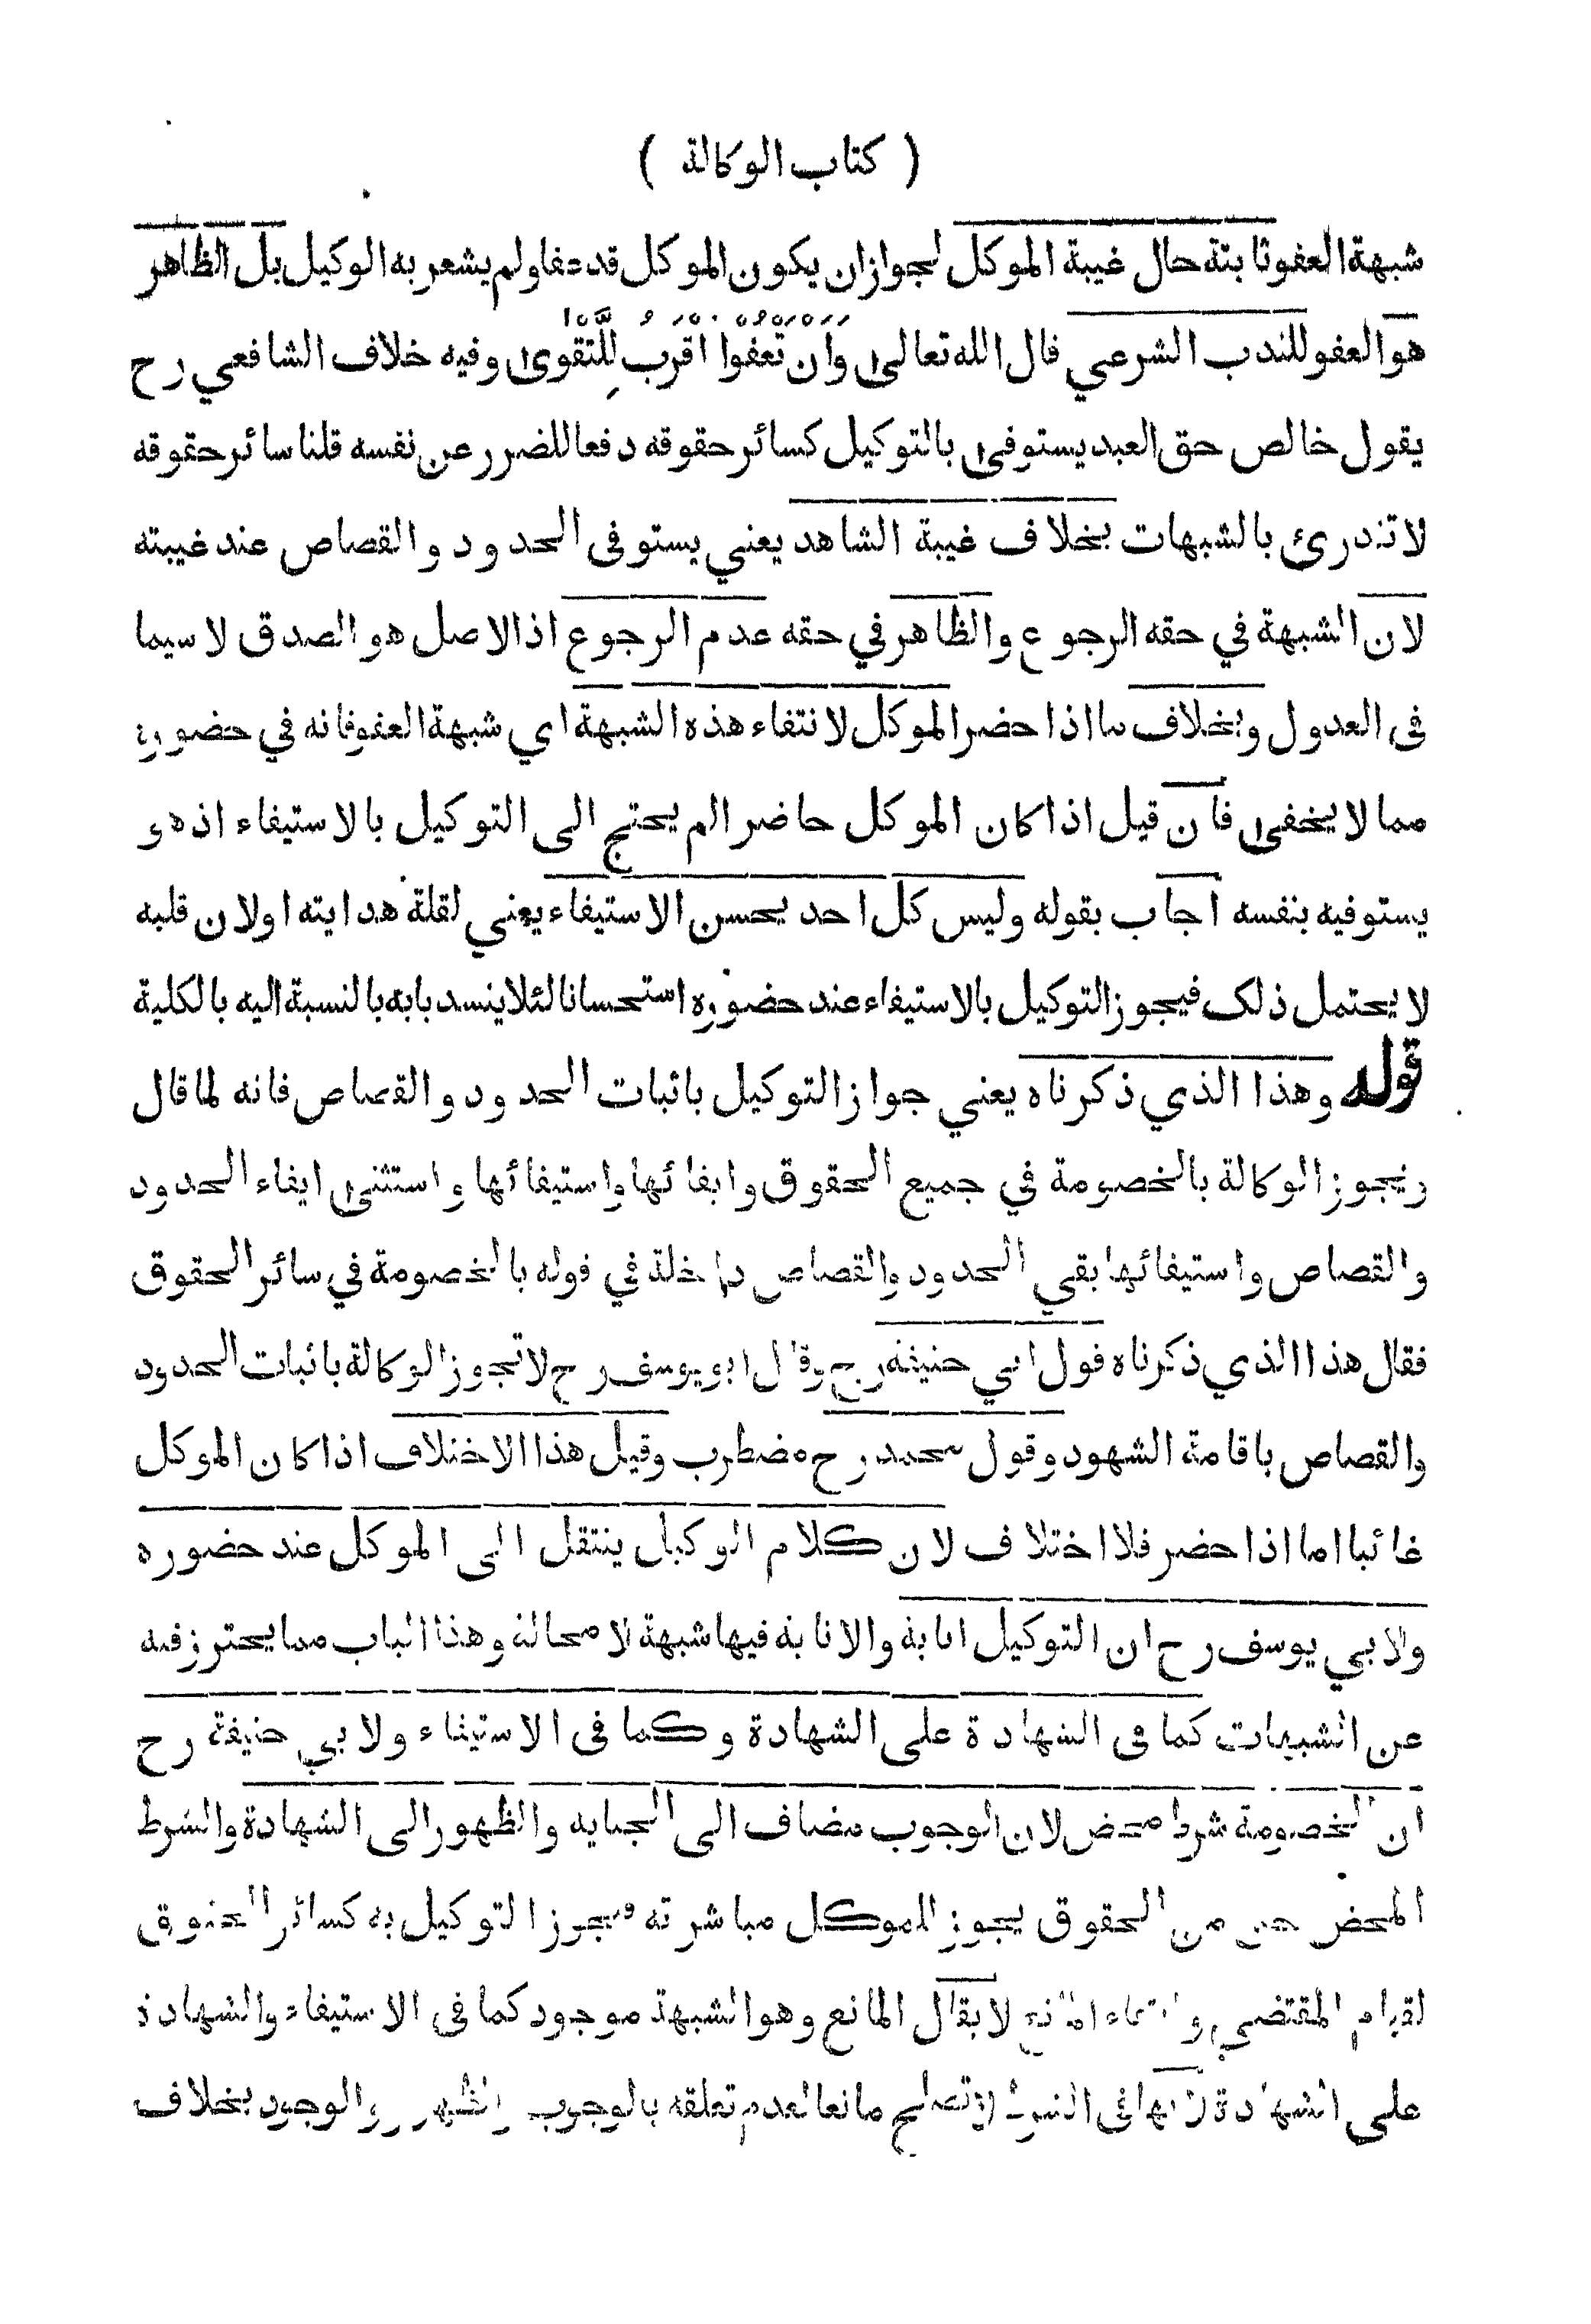 ( كتاب الوكالة )
شبهة العفو ثابتة حال غيبة الموكل لجواز ان يكون الموكل قد عفا ولم يشعر به الوكيل بل الظاهر
هو العفو للندب الشرعي قال الله تعالى وَاَنْ تَعْفُوْا اَقْرَبُ لِلتَّقْوٰى وفيه خلاف الشافعي رح
يقول خالص حق العبد يستوفى بالتوكيل كسائر حقوقه دفعا للضرر عن نفسه قلنا سائر حقوقه
لا تندرئ بالشبهات بخلاف غيبة الشاهد يعني يستوفى الحدود والقصاص عند غيبته
لان الشبهة في حقه الرجوع والظاهر في حقه عدم الرجوع اذ الاصل هو الصدق لا سيما
فى العدول وبخلاف ما اذا حضر الموكل لانتفاء هذه الشبهة اي شبهة العفو فانه في حضوره
مما لا يخفى فان قيل اذا كان الموكل حاضرا لم يحتج الى التوكيل بالاستيفاء اذ هو
يستوفيه بنفسه اجاب بقوله وليس كل احد يحسن الاستيفاء يعني لقلة هدايته اولان قلبه
لا يحتمل ذلك فيجوز التوكيل بالاستيفاء عند حضوره استحسانا لئلا ينسد بابه بالنسبة اليه بالكلية
قوله وهذا الذي ذكرناه يعني جواز التوكيل باثبات الحدود والقصاص فانه لما قال
ويجوز الوكالة بالخصومة في جميع الحقوق وايفائها واستيفائها واستثنى ايفاء الحدود
والقصاص واستيفائها بقي الحدود والقصاص داخلة في قوله بالخصومة في سائر الحقوق
فقال هذا الذي ذكرناه قول ابي حنيفه رح وقال ابو يوسف رح لا تجوز الوكالة باثبات الحدود
والقصاص باقامة الشهود وقول محمد رح مضطرب وقيل هذا الاختلاف اذا كان الموكل
غائبا اما اذا حضر فلا اختلاف لان كلام الوكيل ينتقل الى الموكل عند حضوره
ولابي يوسف رح ان التوكيل انابة والانابة فيها شبهة لا محالة وهذا الباب مما يحترز فيه
عن الشبهات كما فى الشهادة على الشهادة وكما فى الاستيفاء ولابي حنيفة رح
ان الخصومة شرط محض لان الوجوب مضاف الى الجنايه والظهور الى الشهادة والشرط
المحض حق من الحقوق يجوز للموكل مباشرته فيجوز التوكيل به كسائر الحقوق
لقيام المقتضى وانتفاء المانع لا يقال المانع وهو الشبهة موجود كما فى الاستيفاء والشهادة
على الشهادة لانها فى الشرط لا تصلح مانعا لعدم تعلقه بالوجوب والظهور والوجود بخلاف